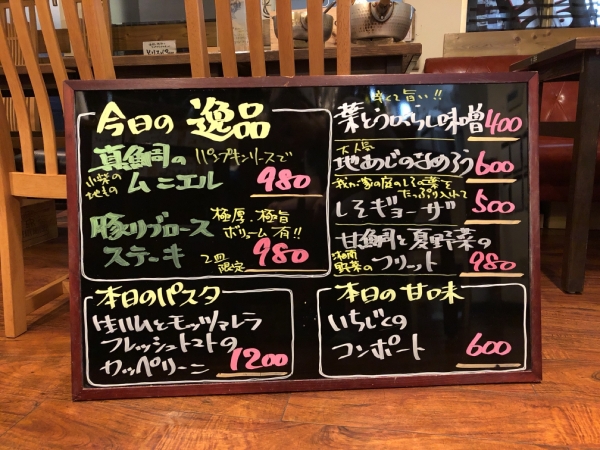 今日の 逸品
真鯛の パンプキンソースで
小柴の
地もの
ムニエル 980
豚リブロース 極厚、極旨
ボリューム有!!
ステーキ 2皿
限定 980
辛くて旨い!!
葉とうがらし味噌 400
大人気
地あじのさめろう 600
我が家の庭のしその葉を
たっぷり入れて
しそギョーザ 500
甘鯛と夏野菜の
湘南
野菜の
フリット 980
本日のパスタ
生ハムとモッツァレラ
フレッシュトマトの
カッペリーニ 1200
本日の甘味
いちじくの
コンポート 600